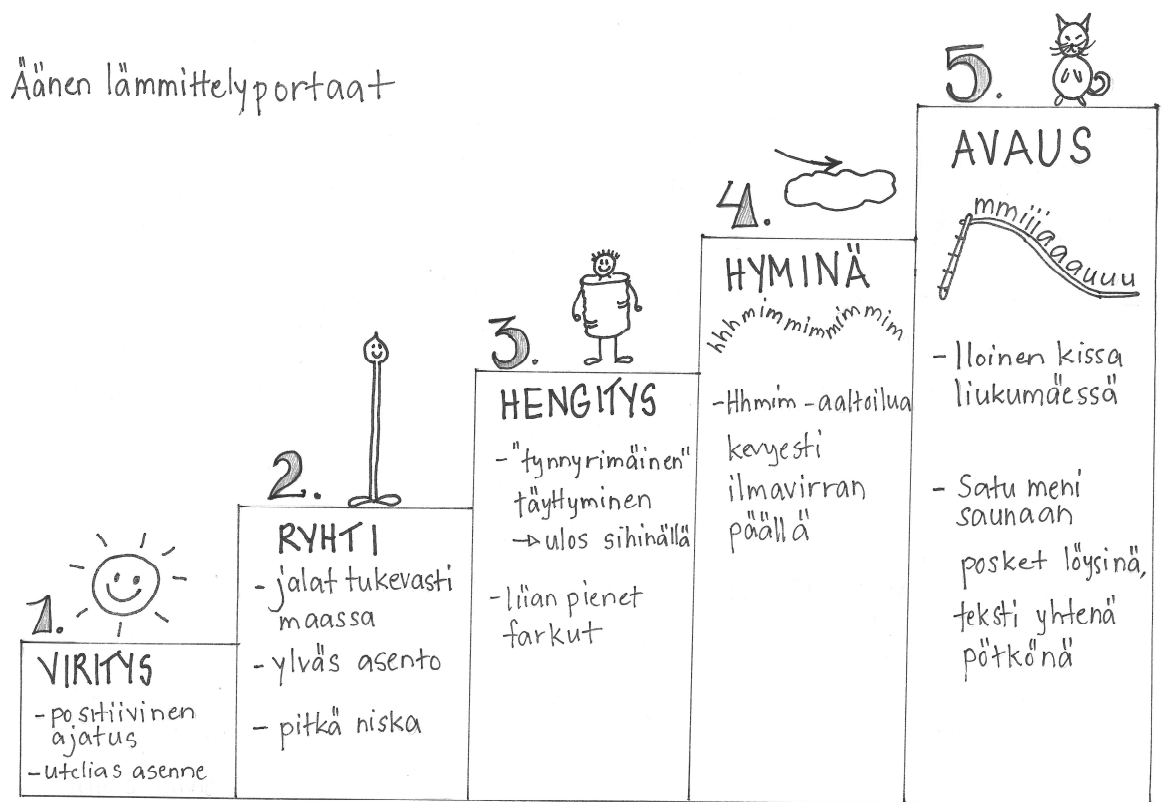 Äänen lämmittelyportaat
1.
VIRITYS
- positiivinen
ajatus
- utelias asenne
2.
RYHTI
- jalat tukevasti
maassa
- ylväs asento
- pitkä niska
3.
HENGITYS
- "tynnyrimäinen"
täyttyminen
→ ulos sihinällä
- liian pienet
farkut
4.
HYMINÄ
hhhmimmimmimmimmim
- Hhmim - aaltoilua
kevyesti
ilmavirran
päällä
5.
AVAUS
mmiiiaaauuu
- Iloinen kissa
liukumäessä
- Satu meni
saunaan
posket löysinä,
teksti yhtenä
pötkönä